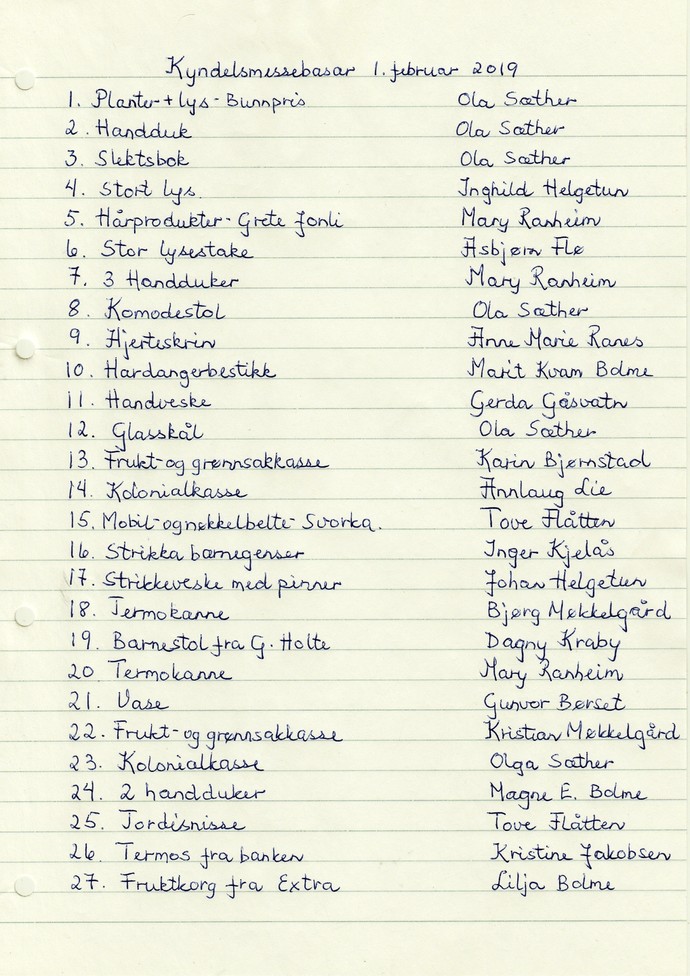 Kyndelsmessebasar 1. februar 2019
1. Planter + lys - Bunnpris Ola Sæther
2. Handduk Ola Sæther
3. Slektsbok Ola Sæther
4. Stort lys. Inghild Helgetun
5. Hårprodukter - Grete Jonli Mary Ranheim
6. Stor lysestake Asbjørn Flø
7. 3 Handduker Mary Ranheim
8. Komodestol Ola Sæther
9. Hjerteskrin Anne Marie Ranes
10. Hardangerbestikk Marit Kvam Bolme
11. Handveske Gerda Gåsvatn
12. Glasskål Ola Sæther
13. Frukt- og grønnsakkasse Karin Bjørnstad
14. Kolonialkasse Annlaug Lie
15. Mobil- og nøkkelbelte - Svorka. Tove Flåtten
16. Strikka barnegenser Inger Kjelås
17. Strikkeveske med pinner Johan Helgetun
18. Termokanne Bjørg Møkkelgård
19. Barnestol fra G. Holte Dagny Kraby
20 Termokanne Mary Ranheim
21. Vase Gunvor Børset
22. Frukt- og grønnsakkasse Kristian Møkkelgård
23. Kolonialkasse Olga Sæther
24. 2 handduker Magne E. Bolme
25. Tordisnisse Tove Flåtten
26. Termos fra banken Kristine Jakobsen
27. Fruktkorg fra Extra Lilja Bolme